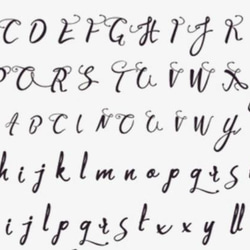 C D E F G H I J K
P Q R S T U V W X
A B C I N O U V W y
h i j k l m n o p q r s
i j l p q r s t x x y ll